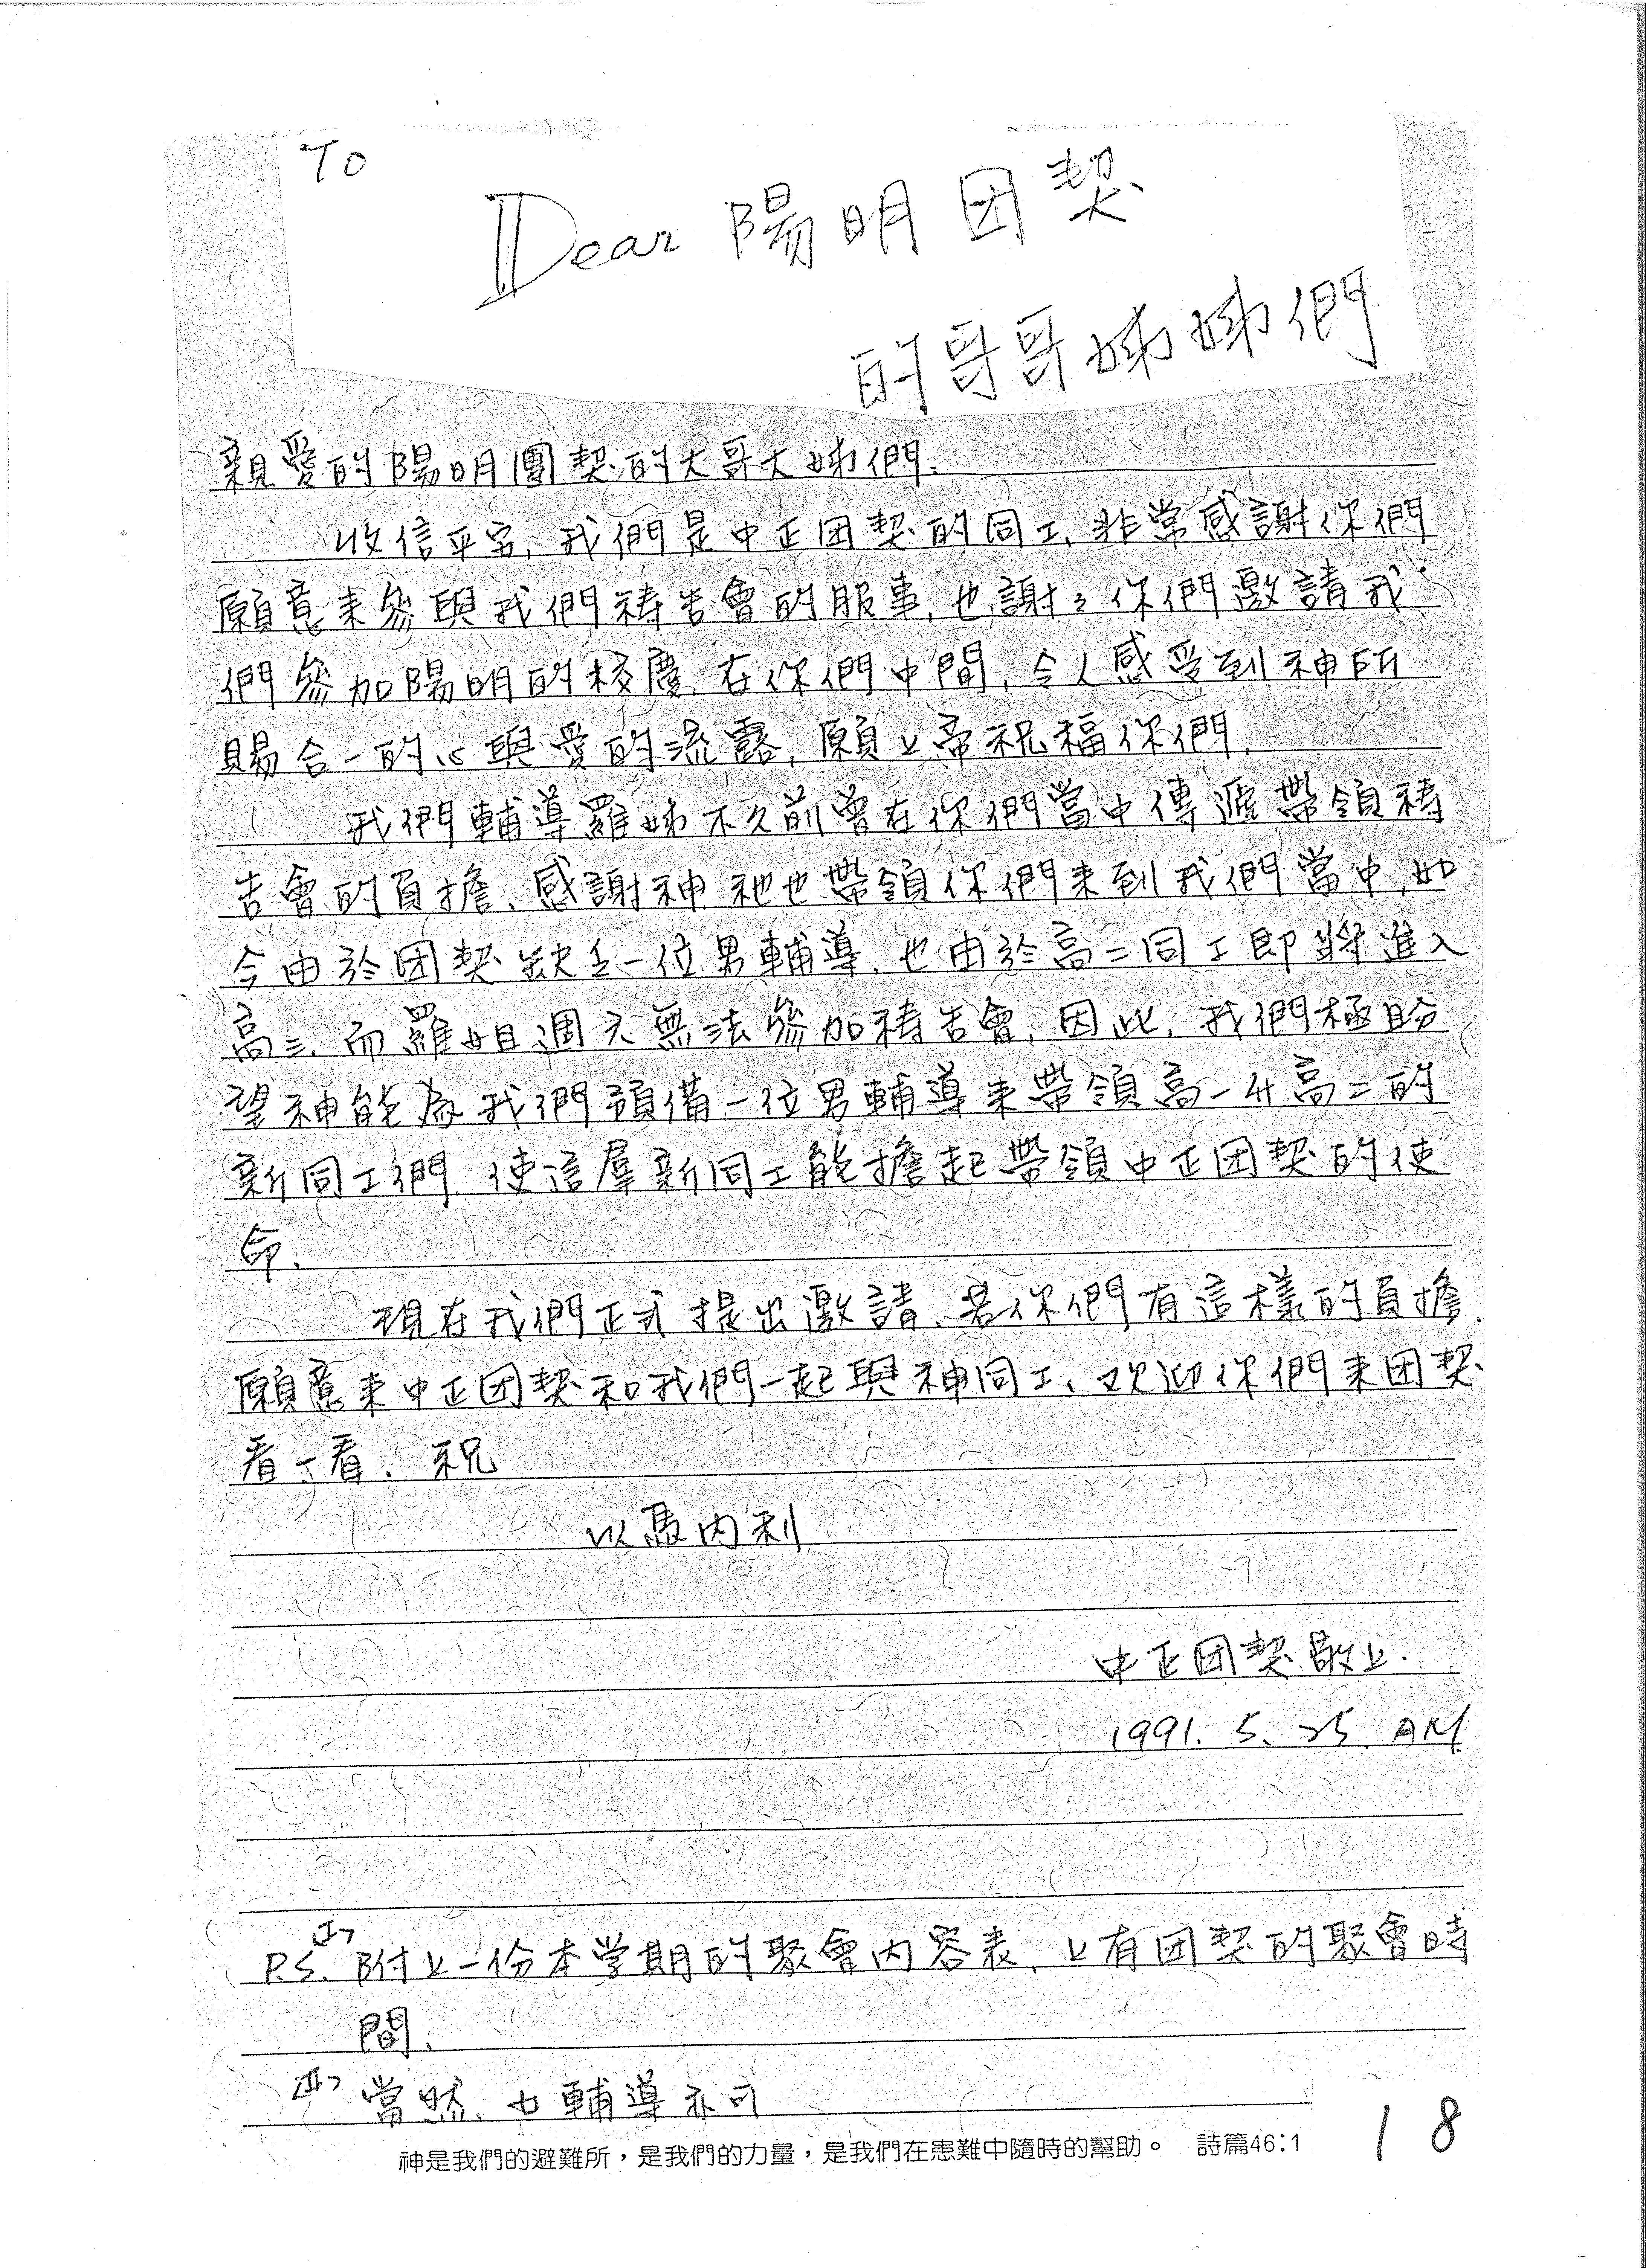 To
Dear 陽明团契
的哥哥姊姊們
親愛的陽明團契的大哥大姊們.
收信平安, 我們是中正团契的同工, 非常感謝你們
願意來參與我們禱告會的服事, 也謝々你們邀請我
們參加陽明的校慶, 在你們中間, 令人感受到神所
賜合一的心與愛的流露, 願上帝祝福你們.
我們輔導羅姊不久前曾在你們當中傳遞帶領禱
告會的負擔, 感謝神祂也帶領你們來到我們當中, 如
今由於团契缺乏一位男輔導, 也由於高二同工即將進入
高三, 而羅姐週六無法參加禱告會, 因此, 我們極盼
望神能為我們預備一位男輔導來帶領高一升高二的
新同工們, 使這羣新同工能擔起帶領中正团契的使
命.
現在我們正式提出邀請, 若你們有這樣的負擔.
願意來中正团契和我們一起與神同工, 欢迎你們來团契
看一看. 祝
以馬內利
中正团契敬上.
1991. 5. 25. AM.
P.S. I> 附上一份本学期的聚會內容表, 上有团契的聚會時
間.
II> 當然, 女輔導亦可
神是我們的避難所，是我們的力量，是我們在患難中隨時的幫助。 詩篇46:1
18